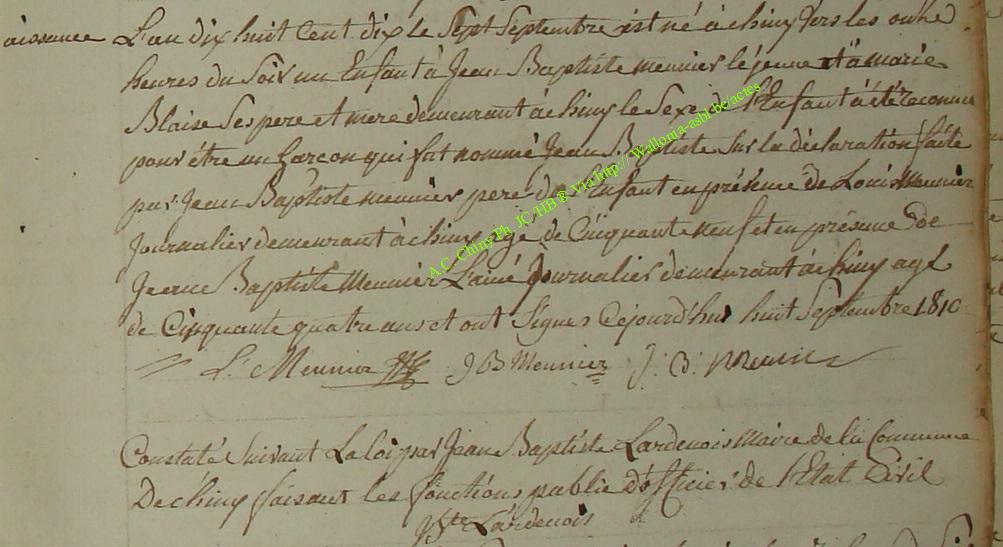 aissance L'an dix huit Cent dix le Sept Septembre est né à chiny vers les onhe
heures du Soir un Enfant à Jean Baptiste meunier lejeune et à marie
Blaise Ses pere et mere demeurant à chiny le Sexe de l'Enfant à été Reconnu
pour être un Garcon qui fut nommé Jean Baptiste Sur la déclaration faite
par Jean Baptiste meunier pere de l'Enfant en présence de Louis Meunier
Journalier demeurant à chiny agé de Cinquante neuf et en présence de
Jean Baptiste Meunier L'ainé Journalier demeurant à chiny agé
de Cinquante quatre ans et ont Signés Cejourd'hui huit Septembre 1810
L. Meunier J B Meunier J. B. Meunier
Constaté Suivant La loi par Jean Baptiste Lardenois Maire de la Commune
De chiny faisant les fonctions public d'officier de l'Etat Civil
Lardenois
A.C. Chiny Ph. JC /HB ® via http:// Wallonia-asbl.be/actes